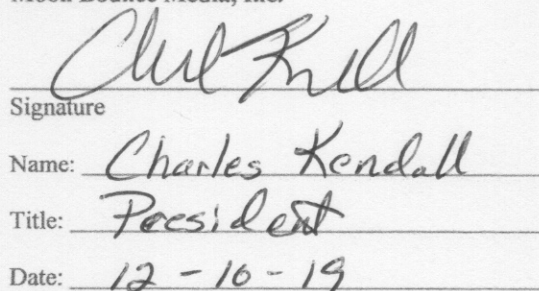 Moon Bounce Media, Inc.
Signature
Name: Charles Kendall
Title: President
Date: 12-16-19